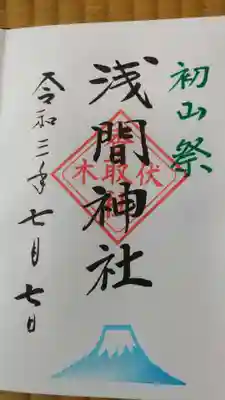 初山祭
浅間神社
伏取木
令和三年七月七日